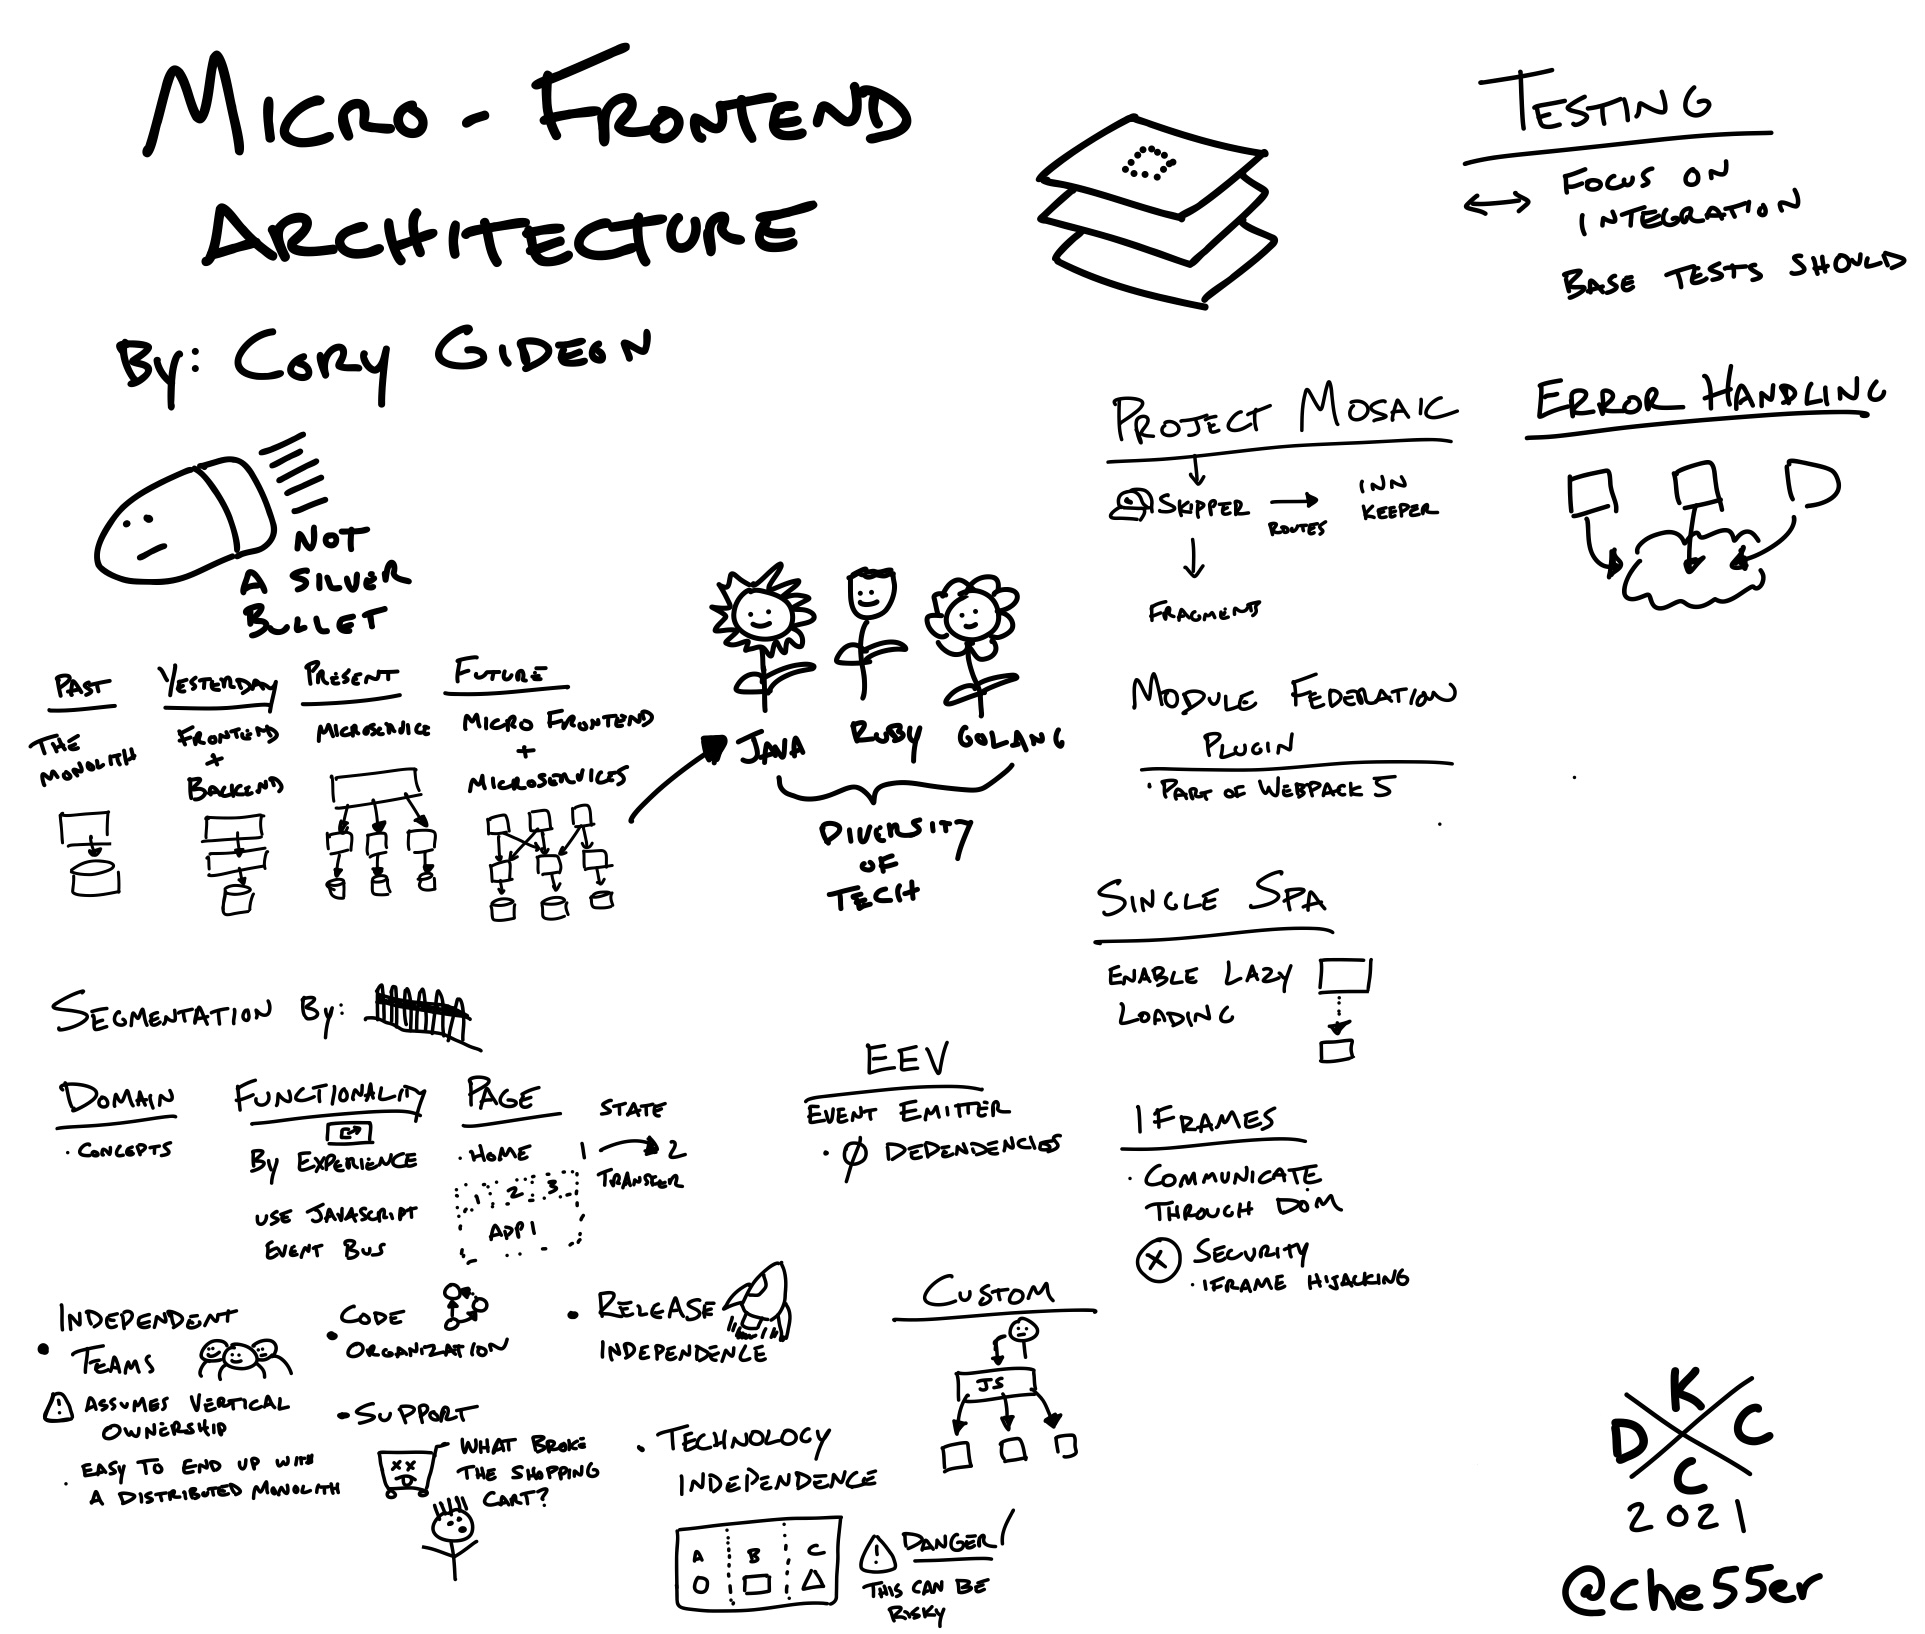 MICRO-FRONTEND
ARCHITECTURE
BY: CORY GIDEON
NOT
A SILVER
BULLET
PAST
THE
MONOLITH
YESTERDAY
FRONTEND
+
BACKEND
PRESENT
MICROSERVICE
FUTURE
MICRO FRONTEND
+
MICROSERVICES
JAVA
RUBY
GOLANG
DIVERSITY
OF
TECH
SEGMENTATION BY:
DOMAIN
· CONCEPTS
FUNCTIONALITY
BY EXPERIENCE
USE JAVASCRIPT
EVENT BUS
PAGE
· HOME
1 2 3
APP 1
STATE
1 → 2
TRANSFER
• INDEPENDENT
TEAMS
ASSUMES VERTICAL
OWNERSHIP
· EASY TO END UP WITH
A DISTRIBUTED MONOLITH
• CODE
ORGANIZATION
• SUPPORT
WHAT BROKE
THE SHOPPING
CART?
• RELEASE
INDEPENDENCE
• TECHNOLOGY
INDEPENDENCE
A B C
! DANGER!
THIS CAN BE
RISKY
EEV
EVENT EMITTER
· Ø DEPENDENCIES
CUSTOM
JS
PROJECT MOSAIC
SKIPPER → INN
ROUTES KEEPER
FRAGMENTS
MODULE FEDERATION
PLUGIN
· PART OF WEBPACK 5
SINGLE SPA
ENABLE LAZY
LOADING
IFRAMES
· COMMUNICATE
THROUGH DOM
X SECURITY
· IFRAME HIJACKING
TESTING
↔ FOCUS ON
INTEGRATION
BASE TESTS SHOULD
ERROR HANDLING
K
D C
C
2021
@che55er